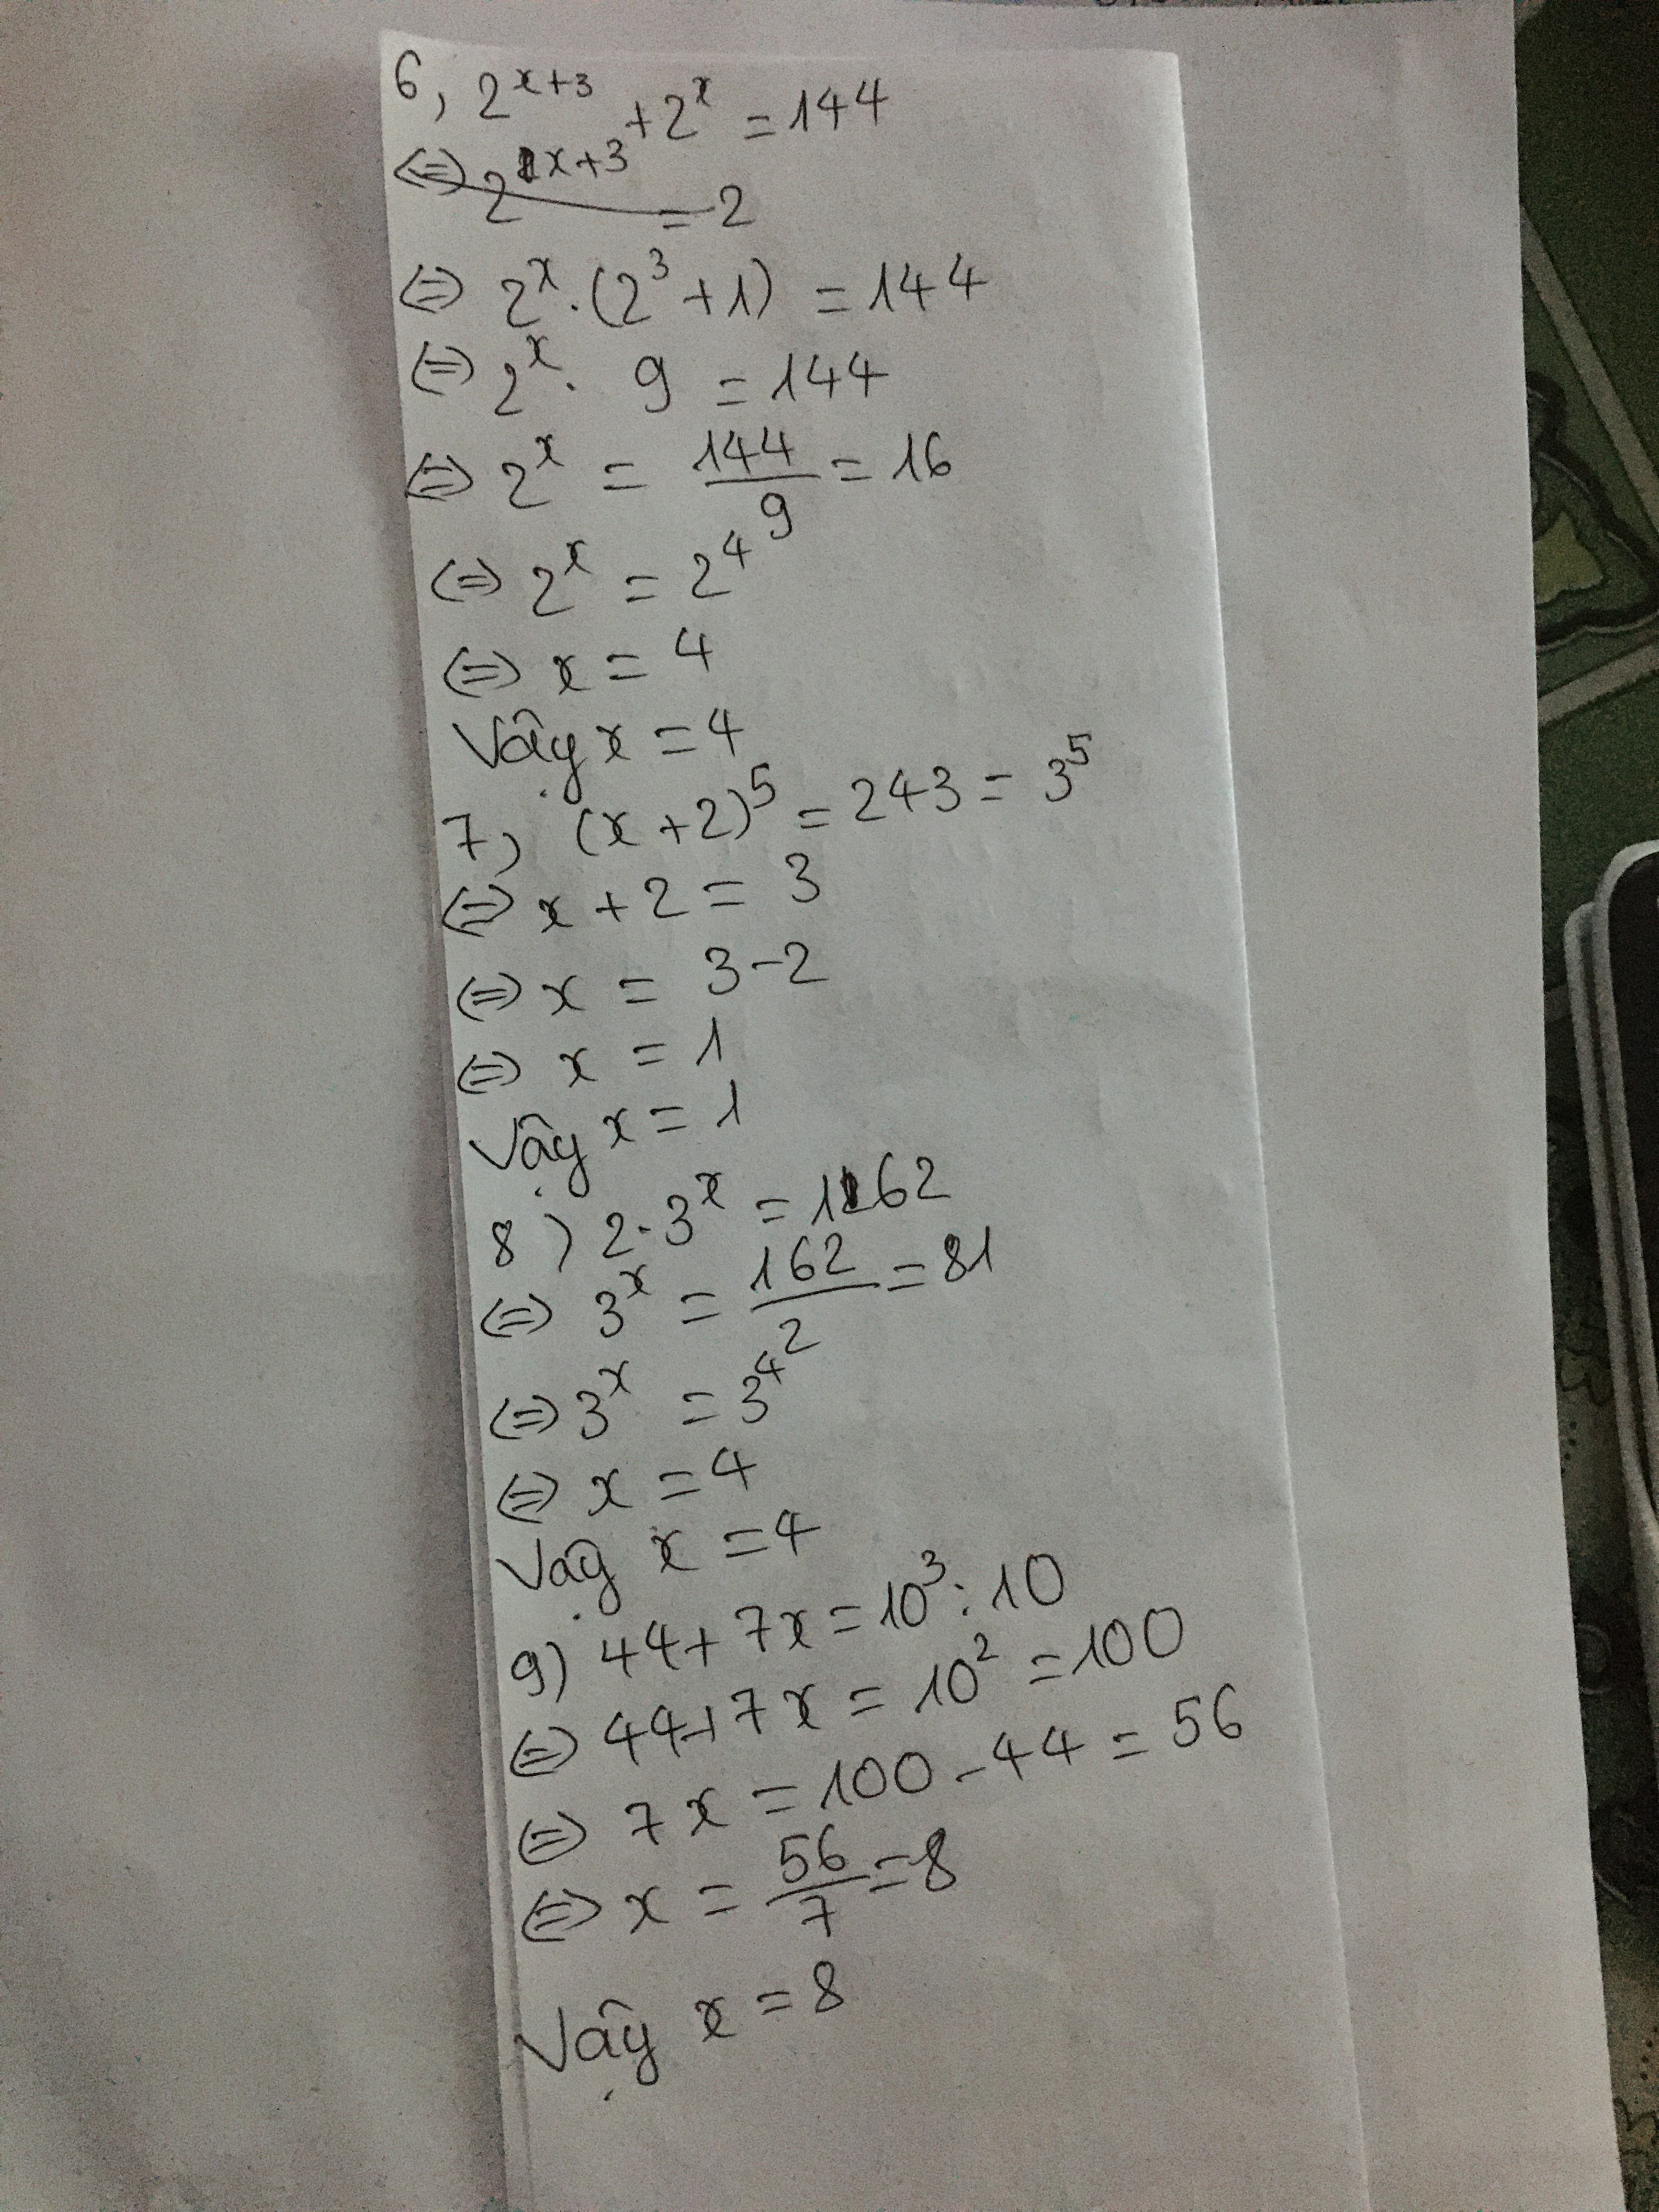 6, 2^{x+3} + 2^x = 144
⇔ 2^{x+3} = 2
⇔ 2^x . (2^3 + 1) = 144
⇔ 2^x . 9 = 144
⇔ 2^x = 144/9 = 16
⇔ 2^x = 2^4
⇔ x = 4
Vậy x = 4
7, (x + 2)^5 = 243 = 3^5
⇔ x + 2 = 3
⇔ x = 3 - 2
⇔ x = 1
Vậy x = 1
8) 2 . 3^x = 162
⇔ 3^x = 162/2 = 81
⇔ 3^x = 3^4
⇔ x = 4
Vậy x = 4
9) 44 + 7x = 10^3 : 10
⇔ 44 + 7x = 10^2 = 100
⇔ 7x = 100 - 44 = 56
⇔ x = 56/7 = 8
Vậy x = 8